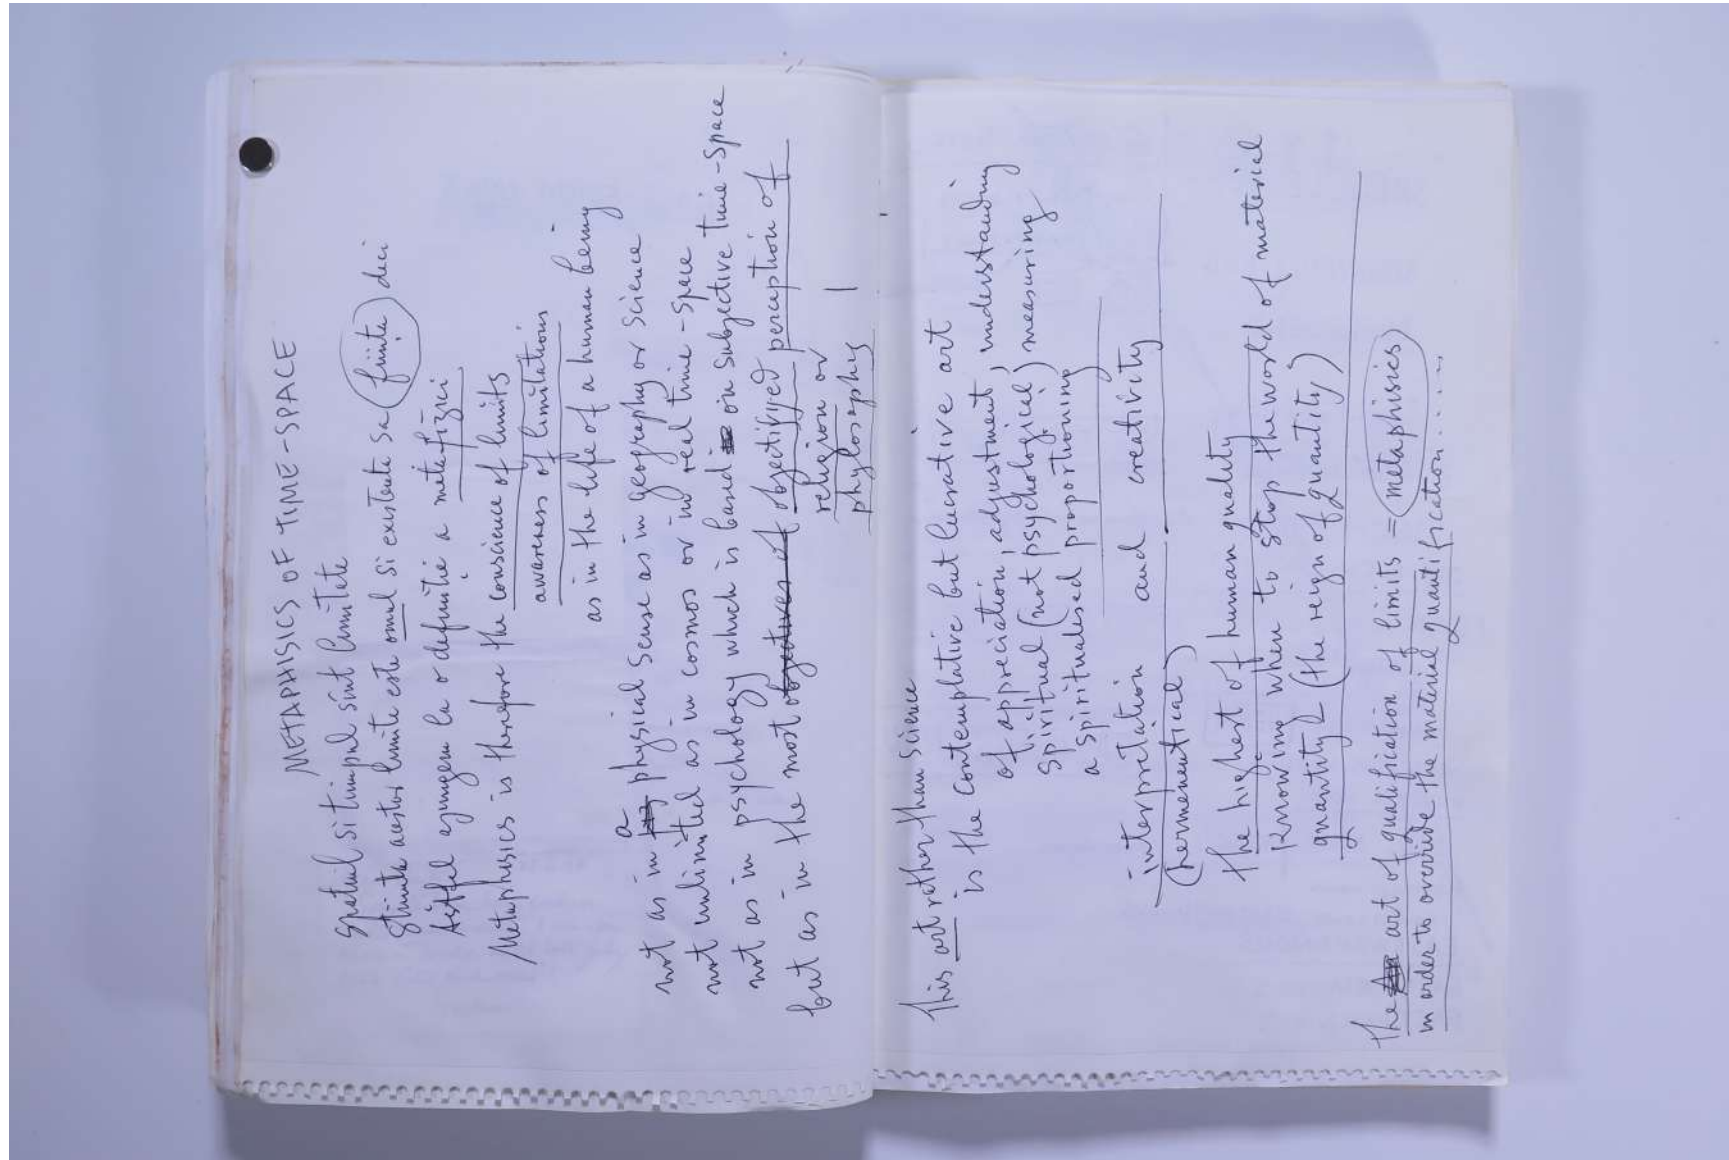 METAPHISICS OF TIME-SPACE
Spatiul si timpul sint limitate
Stiinta acestor limite este omul si existenta sa (finita) deci
Astfel ajungem la o definitie a metafizici
Metaphisics is therefore the conscience of limits
awareness of limitations
as in the life of a human being
not as in a physical sense as in geography or science
not unlimited as in cosmos or in real time-space
not as in psychology which is based on subjective time-space
but as in the most objectives of objectifyed perception of
religion or
phylosophy
This art rather than science
is the contemplative but lucrative art
of appreciation, adjustment, understanding
spiritual (not psychological) measuring
a spiritualised proportioning
interpretation and creativity
(hermeneutical)
the highest of human quality
knowing when to stop the world of material
quantity (the reign of quantity)
the art of qualification of limits = metaphisics
in order to override the material quantification.....